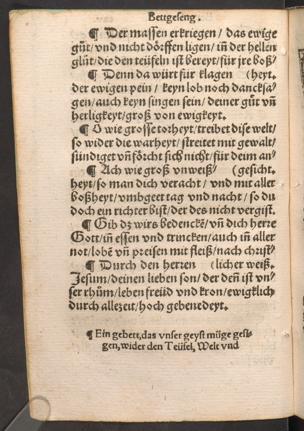 Bettgeseng.
¶ Der massen erkriegen / das ewige
gůt / vnd nicht dörffen ligen / in̄ der hellen
glůt / die den teüfeln ist bereyt / für jre boß⸗
¶ Denn da würt für klagen (heyt.
der ewigen pein / keyn lob noch dancksa⸗
gen / auch keyn singen sein / deiner gůt vn̄
herligkeyt / groß von ewigkeyt.
¶ O wie grosse torheyt / treibet dise welt /
so wider die warheyt / streitet mit gewalt /
sündiget vn̄ förcht sich nicht / für deim an⸗
¶ Ach wie groß vnweiß⸗ (gesicht.
heyt / so man dich veracht / vnd mit aller
boßheyt / vmbgeet tag vnd nacht / so du
doch ein richter bist / der des nicht vergist.
¶ Gib dz wirs bedenckē / vn̄ dich herre
Gott / in̄ essen vnd trincken / auch in̄ aller
not / lobē vn̄ preisen mit fleiß / nach christ⸗
¶ Durch den herren (licher weiß.
Jesum / deinen lieben son / der den̄ ist vn⸗
ser rhům / leben freüd vnd kron / ewigklich
durch allezeit / hoch gebenedeyt.
¶ Ein gebett, das vnser geyst müge gesi⸗
gen, wider den Teüfel, Welt vnd